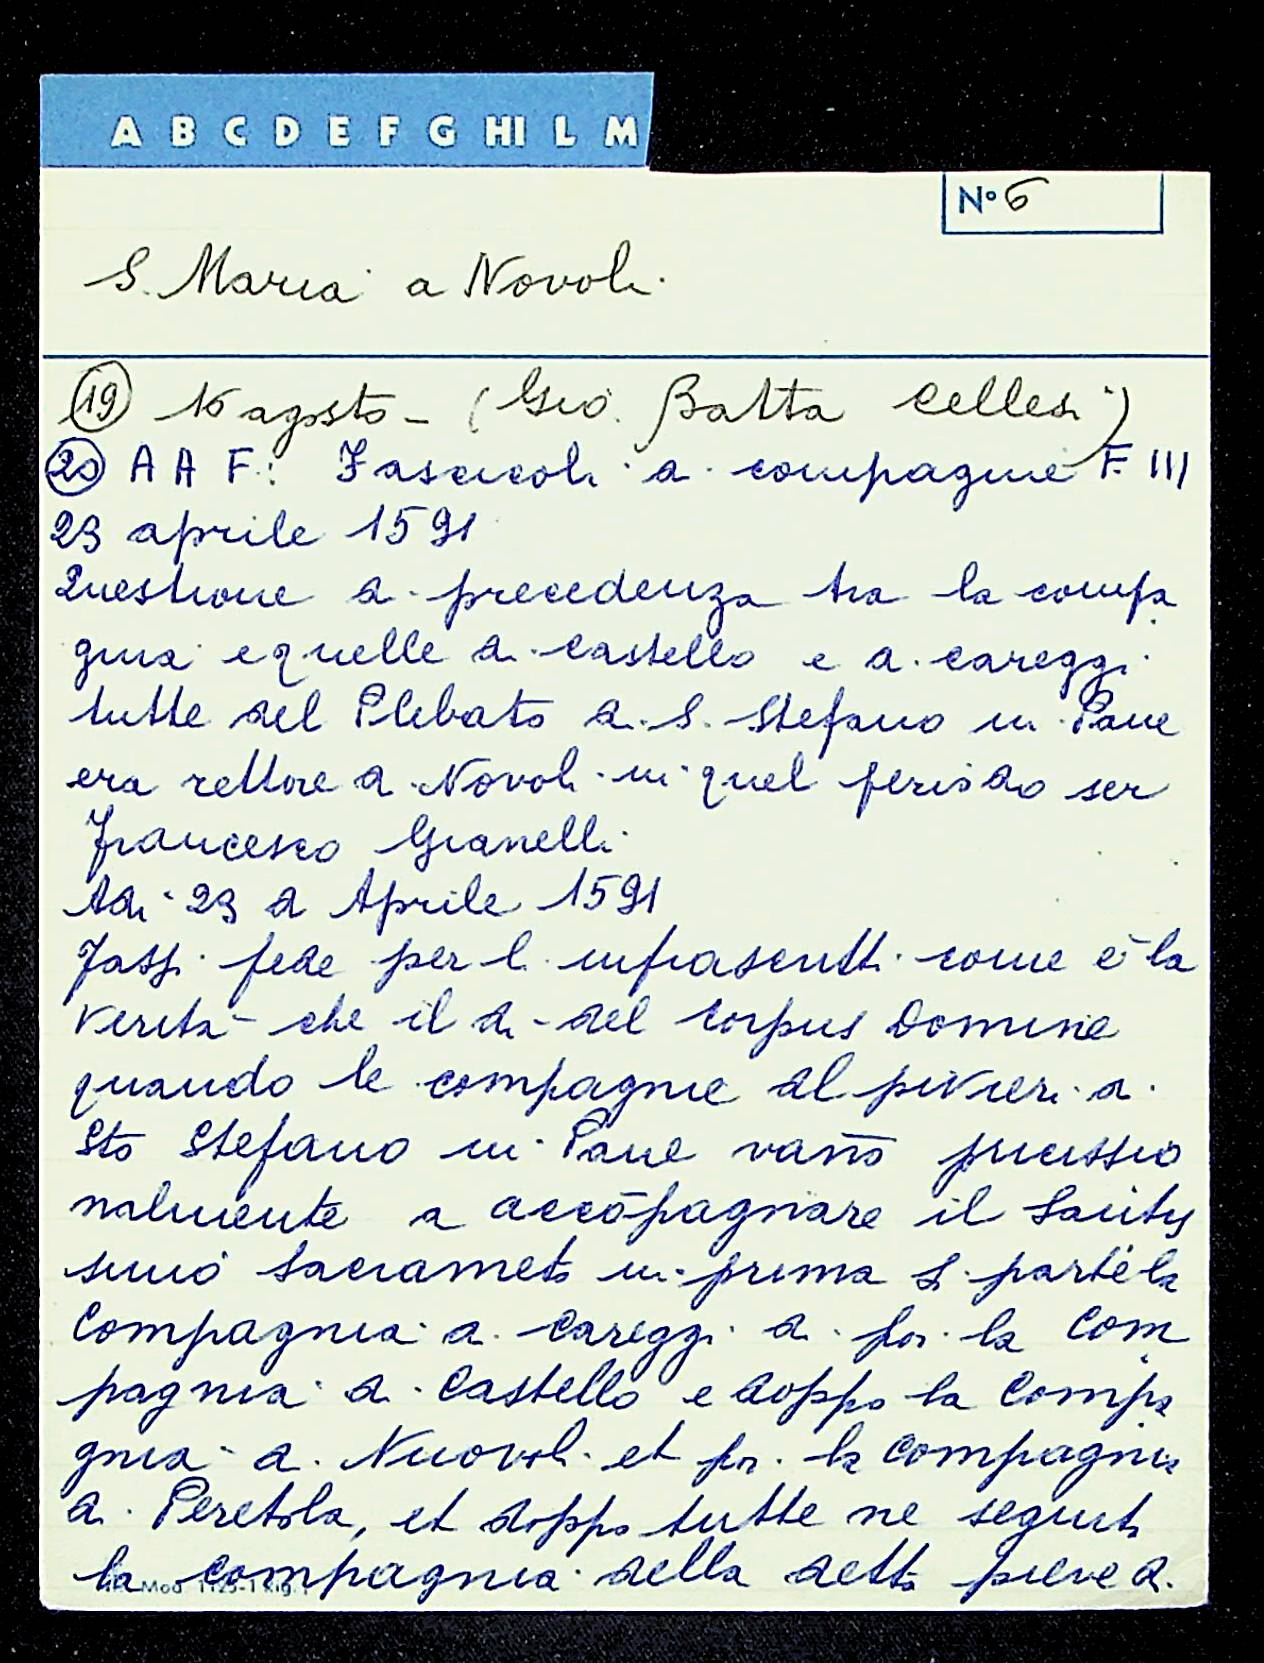 A B C D E F G HI L M
N° 6
S. Maria a Novoli
(19) 16 agosto - (Gio. Batta Cellesi)
(20) A A F: Fascicoli di compagnie F. III
23 aprile 1591
Questione di precedenza tra la compa
gnia e quelle di Castello e di Careggi
tutte del Plebato di S. Stefano in Pane
era rettore di Novoli in quel periodo ser
Francesco Gianelli
Adi 23 di Aprile 1591
Fassi fede per l infrascritti come è la
verita che il di del Corpus Domine
quando le compagnie del pivieri di
Sto Stefano in Pane vanō processio
nalmente a accōpagnare il Santis
simo Sacrameto in prima si parte la
Compagnia di Careggi di poi la Com
pagnia di Castello e doppo la Compa
gnia di Nuovoli et poi la Compagnia
di Peretola, et doppo tutte ne seguita
la compagnia della detta pieve di